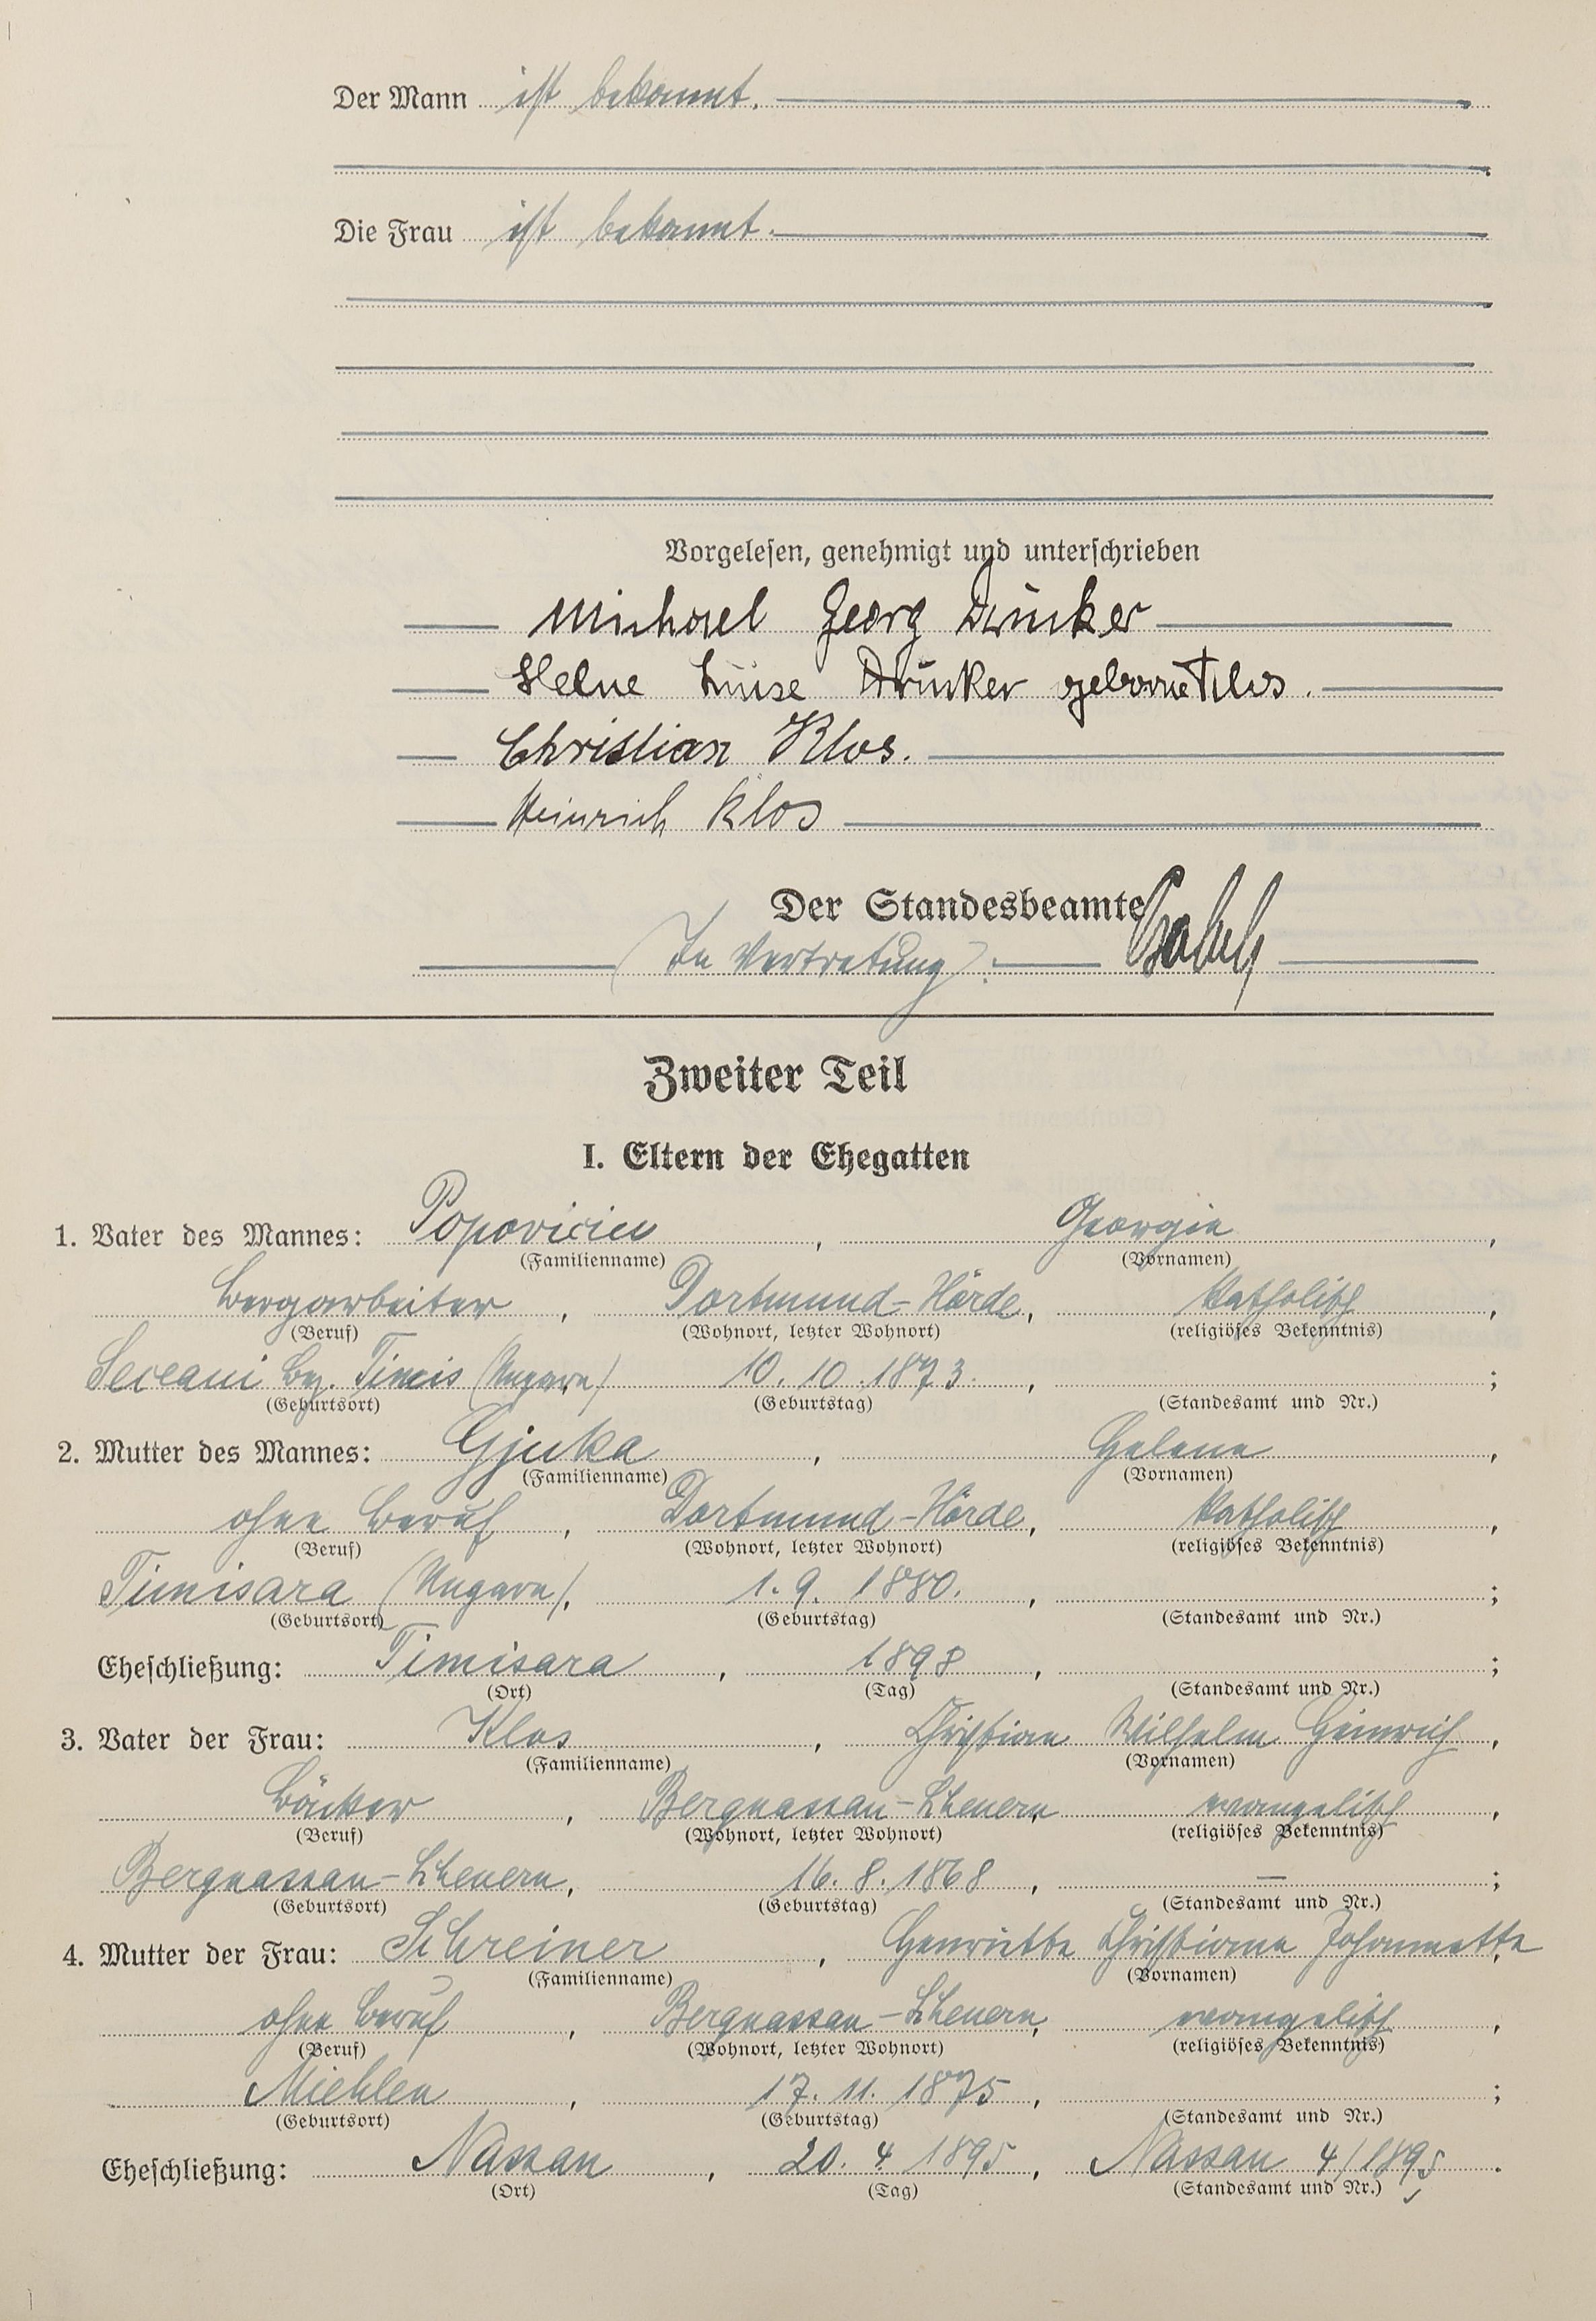 Der Mann ist bekannt.
Die Frau ist bekannt.
Vorgelesen, genehmigt und unterschrieben
Michael Georg Drucker
Helene Luise Drucker geborne Klos.
Christian Klos.
Heinrich Klos
Der Standesbeamte
(In Vertretung):
Zweiter Teil
I. Eltern der Ehegatten
1. Vater des Mannes: Popoviciu, Georgie,
(Familienname) (Vornamen)
Bergarbeiter, Dortmund-Hörde, katholisch,
(Beruf) (Wohnort, letzter Wohnort) (religiöses Bekenntnis)
Seceani Bez. Timis (Ungarn) 10. 10. 1873. , ;
(Geburtsort) (Geburtstag) (Standesamt und Nr.)
2. Mutter des Mannes: Gjuka, Helene,
(Familienname) (Vornamen)
ohne Beruf, Dortmund-Hörde, katholisch,
(Beruf) (Wohnort, letzter Wohnort) (religiöses Bekenntnis)
Timisara (Ungarn), 1. 9. 1880. , ;
(Geburtsort) (Geburtstag) (Standesamt und Nr.)
Eheschließung: Timisara, 1898, ;
(Ort) (Tag) (Standesamt und Nr.)
3. Vater der Frau: Klos, Christian Wilhelm Heinrich,
(Familienname) (Vornamen)
Bäcker, Bergnassau-Scheuern evangelisch,
(Beruf) (Wohnort, letzter Wohnort) (religiöses Bekenntnis)
Bergnassau-Scheuern, 16. 8. 1868, — ;
(Geburtsort) (Geburtstag) (Standesamt und Nr.)
4. Mutter der Frau: Schreiner, Henriette Christiane Johannette,
(Familienname) (Vornamen)
ohne Beruf, Bergnassau-Scheuern, evangelisch,
(Beruf) (Wohnort, letzter Wohnort) (religiöses Bekenntnis)
Miehlen, 17. 11. 1875, ;
(Geburtsort) (Geburtstag) (Standesamt und Nr.)
Eheschließung: Nassau, 20. 4. 1895, Nassau 4/1895.
(Ort) (Tag) (Standesamt und Nr.)